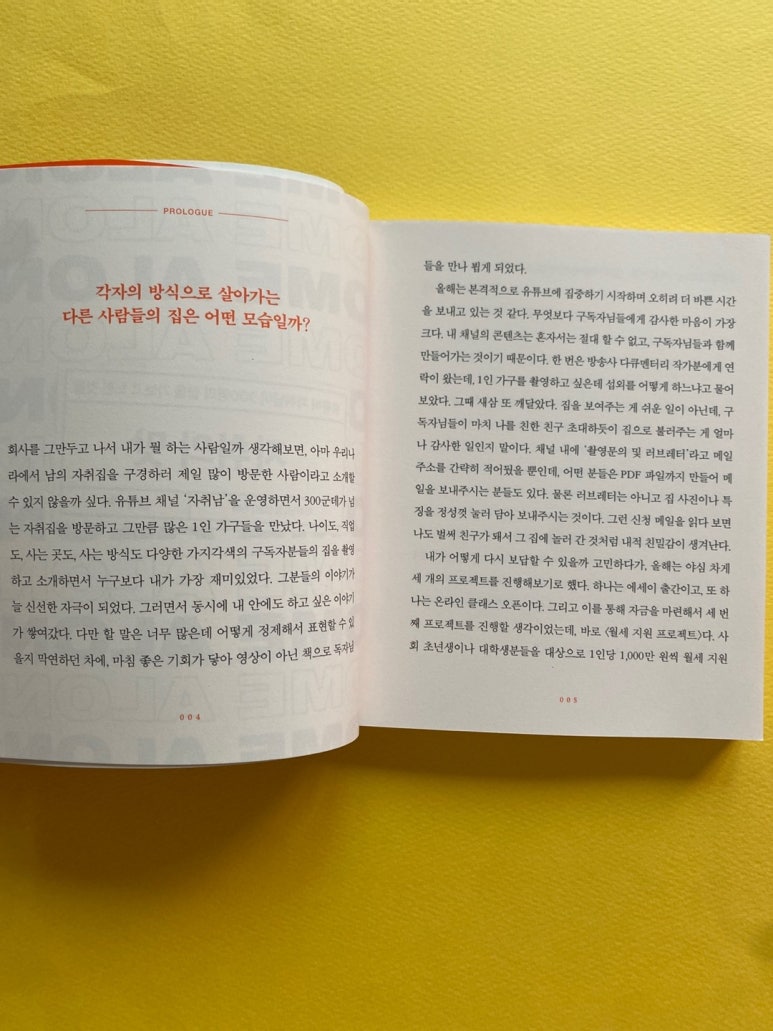 PROLOGUE
각자의 방식으로 살아가는
다른 사람들의 집은 어떤 모습일까?
회사를 그만두고 나서 내가 뭘 하는 사람일까 생각해보면, 아마 우리나
라에서 남의 자취집을 구경하러 제일 많이 방문한 사람이라고 소개할
수 있지 않을까 싶다. 유튜브 채널 ‘자취남’을 운영하면서 300군데가 넘
는 자취집을 방문하고 그만큼 많은 1인 가구들을 만났다. 나이도, 직업
도, 사는 곳도, 사는 방식도 다양한 가지각색의 구독자분들의 집을 촬영
하고 소개하면서 누구보다 내가 가장 재미있었다. 그분들의 이야기가
늘 신선한 자극이 되었다. 그러면서 동시에 내 안에도 하고 싶은 이야기
가 쌓여갔다. 다만 할 말은 너무 많은데 어떻게 정제해서 표현할 수 있
을지 막연하던 차에, 마침 좋은 기회가 닿아 영상이 아닌 책으로 독자님
004
들을 만나 뵙게 되었다.
올해는 본격적으로 유튜브에 집중하기 시작하며 오히려 더 바쁜 시간
을 보내고 있는 것 같다. 무엇보다 구독자님들에게 감사한 마음이 가장
크다. 내 채널의 콘텐츠는 혼자서는 절대 할 수 없고, 구독자님들과 함께
만들어가는 것이기 때문이다. 한 번은 방송사 다큐멘터리 작가분에게 연
락이 왔는데, 1인 가구를 촬영하고 싶은데 섭외를 어떻게 하느냐고 물어
보았다. 그때 새삼 또 깨달았다. 집을 보여주는 게 쉬운 일이 아닌데, 구
독자님들이 마치 나를 친한 친구 초대하듯이 집으로 불러주는 게 얼마
나 감사한 일인지 말이다. 채널 내에 ‘촬영문의 및 러브레터’라고 메일
주소를 간략히 적어뒀을 뿐인데, 어떤 분들은 PDF 파일까지 만들어 메
일을 보내주시는 분들도 있다. 물론 러브레터는 아니고 집 사진이나 특
징을 정성껏 눌러 담아 보내주시는 것이다. 그런 신청 메일을 읽다 보면
나도 벌써 친구가 돼서 그 집에 놀러 간 것처럼 내적 친밀감이 생겨난다.
내가 어떻게 다시 보답할 수 있을까 고민하다가, 올해는 야심 차게
세 개의 프로젝트를 진행해보기로 했다. 하나는 에세이 출간이고, 또 하
나는 온라인 클래스 오픈이다. 그리고 이를 통해 자금을 마련해서 세 번
째 프로젝트를 진행할 생각이었는데, 바로 〈월세 지원 프로젝트〉다. 사
회 초년생이나 대학생분들을 대상으로 1인당 1,000만 원씩 월세 지원
005